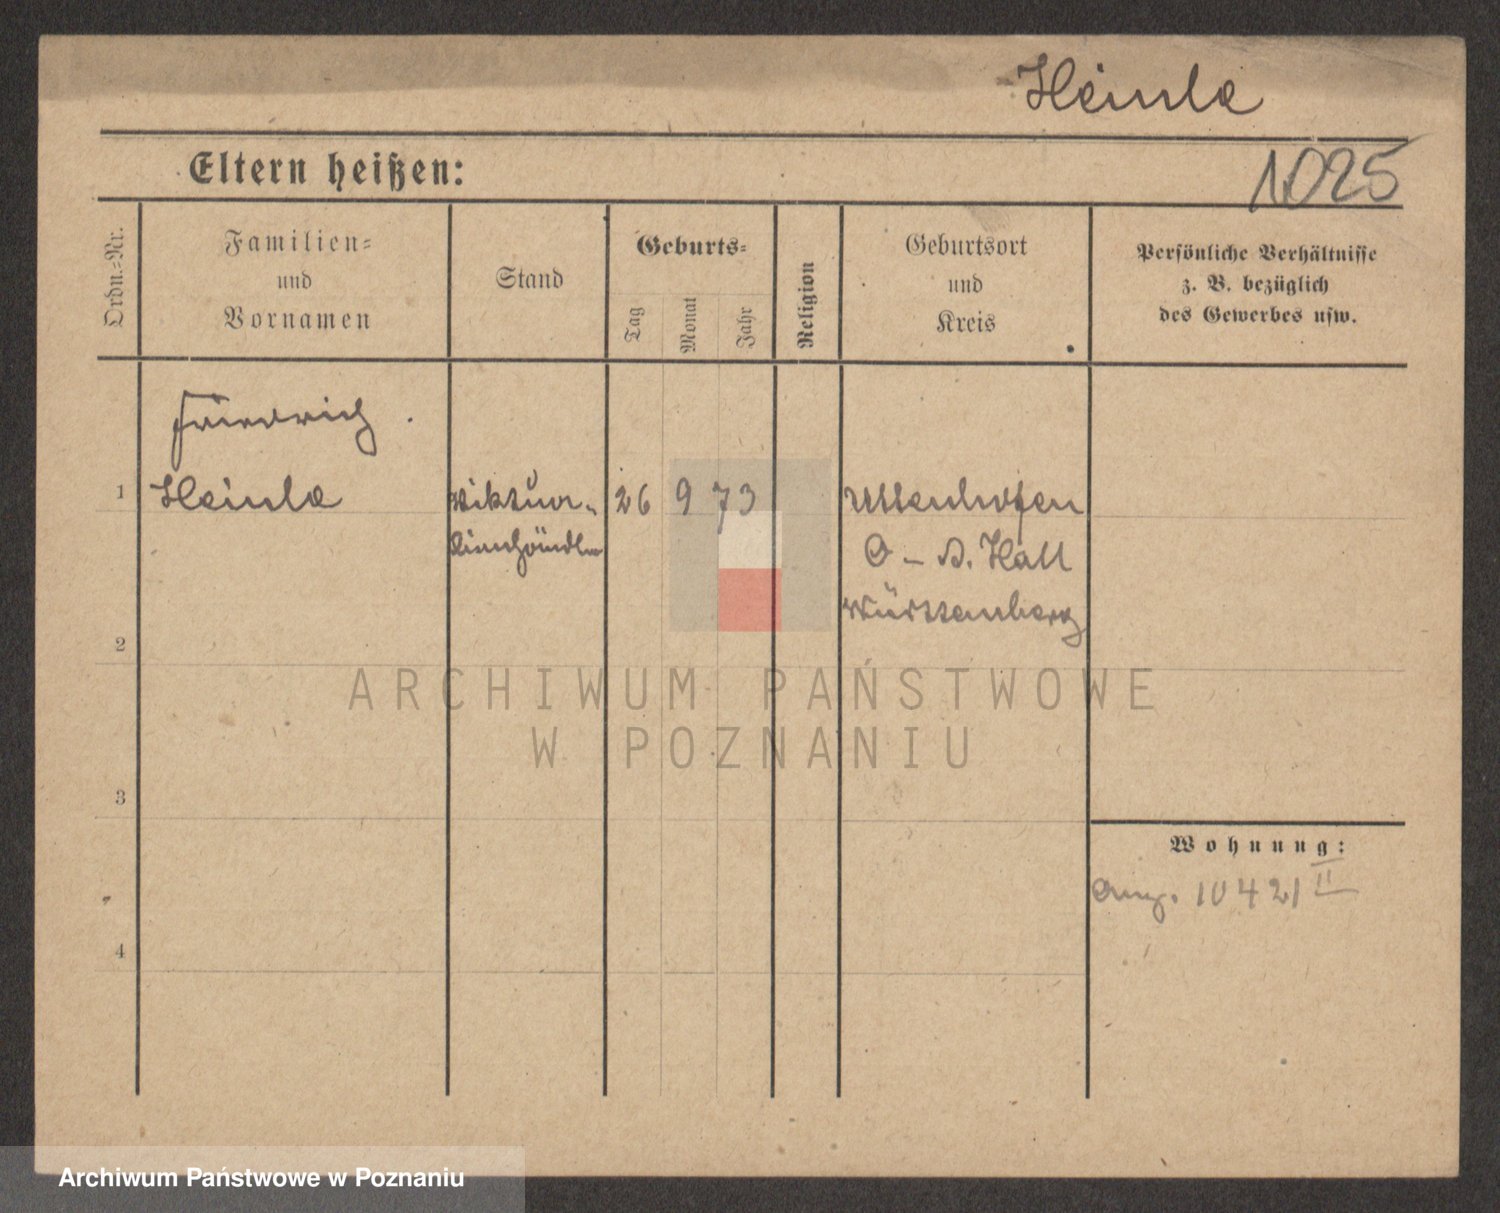 Heinle
Eltern heißen:
1025
Ordn.-Nr.
Familien-
und
Vornamen
Stand
Geburts-
Tag
Monat
Jahr
Religion
Geburtsort
und
Kreis
Persönliche Verhältnisse
z. B. bezüglich
des Gewerbes usw.
Friedrich
1 Heinle Viktua- 26 9 73 Uttenhofen
lienhändler O-A. Hall
Württemberg
2
3
4
Wohnung:
Ang. 10421 II
ARCHIWUM PAŃSTWOWE
W POZNANIU
Archiwum Państwowe w Poznaniu